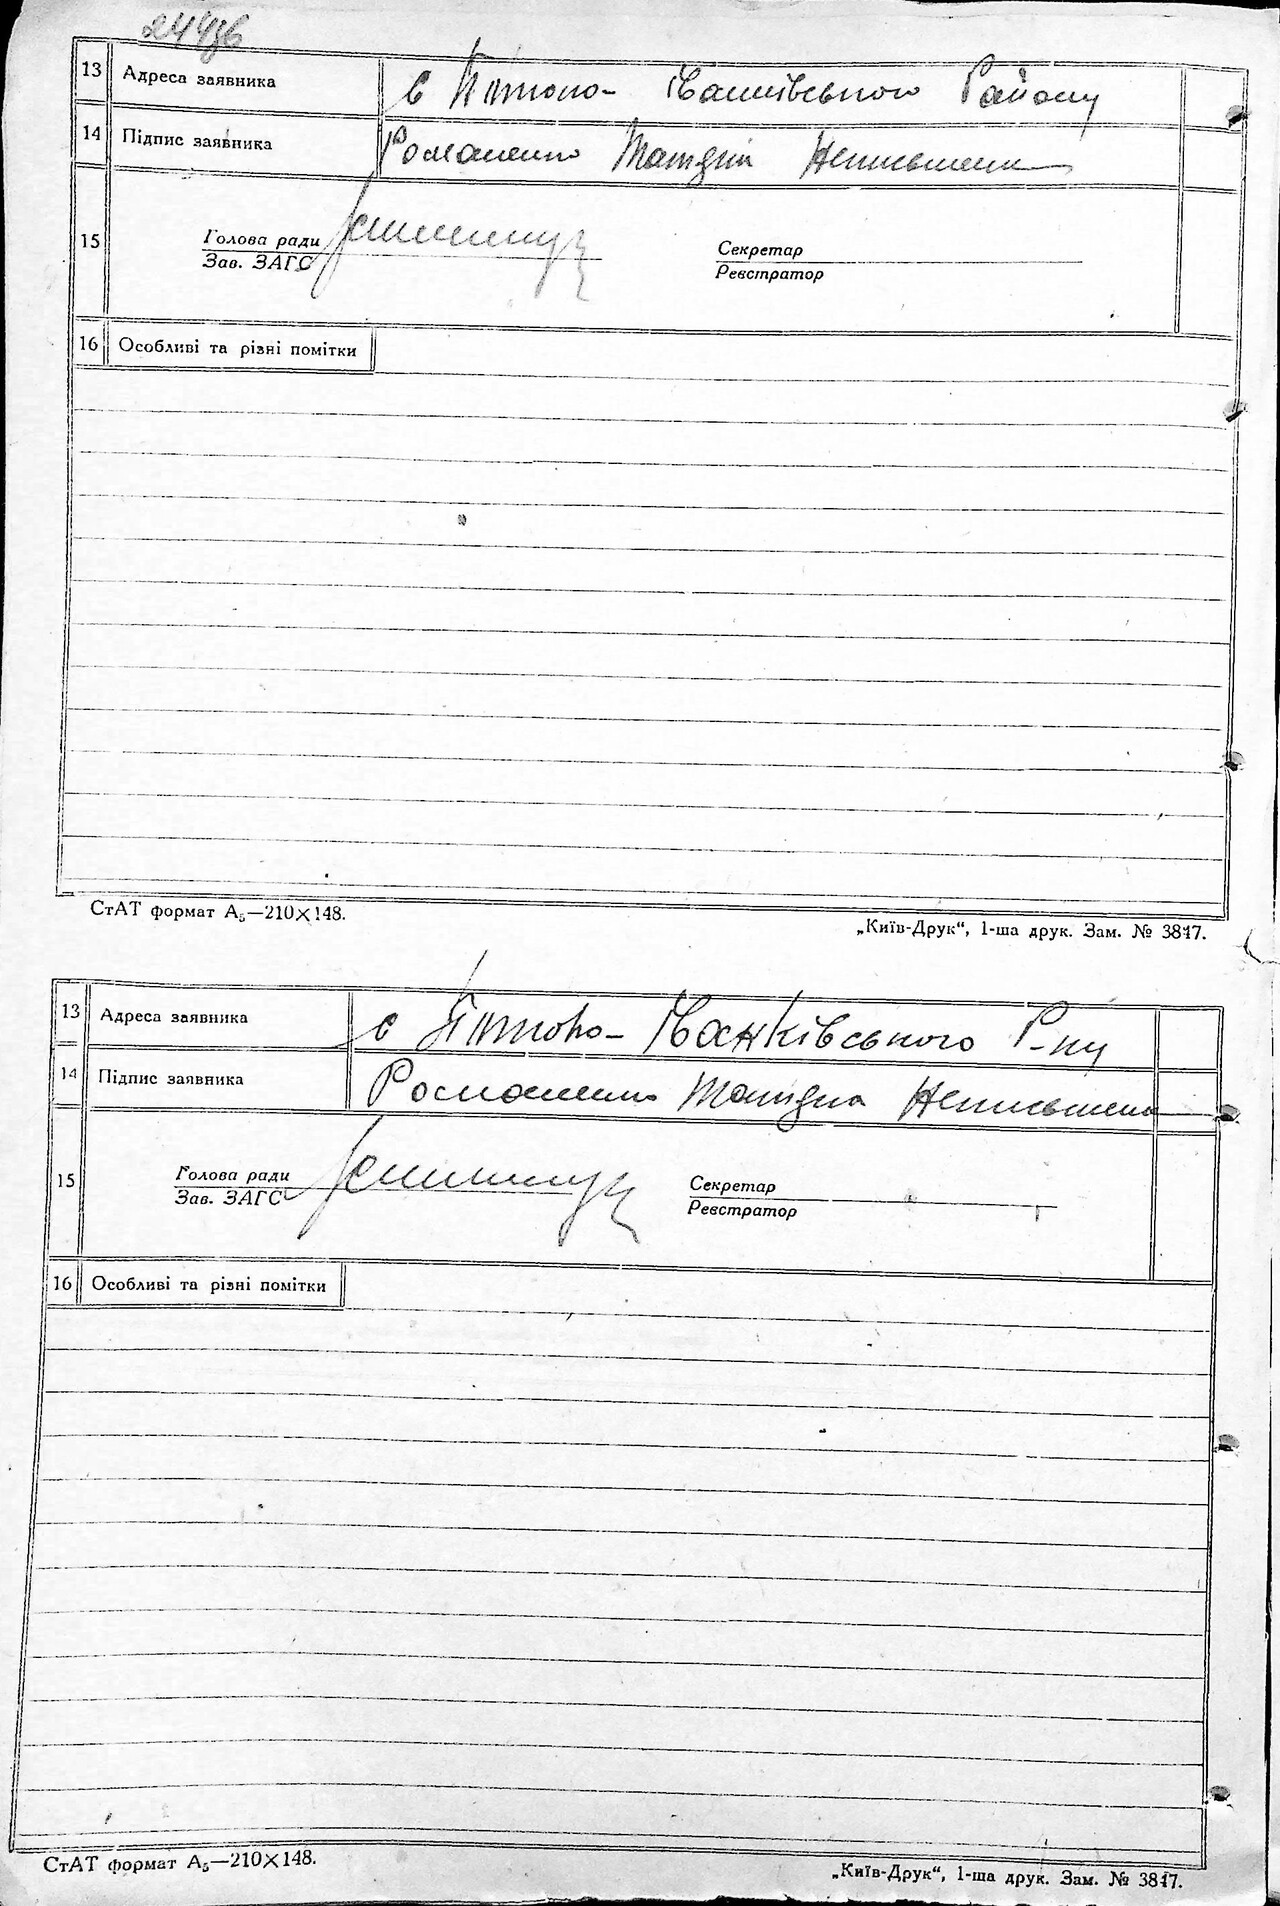 13 Адреса заявника с Пітополо- Іванківського Району
14 Підпис заявника Романенко Тетяна Неписьмена
15 Голова ради Секретар
Зав. ЗАГС Реєстратор
16 Особливі та різні помітки
СтАТ формат А₅—210×148.
„Київ-Друк“, 1-ша друк. Зам. № 3817.
13 Адреса заявника с Іванківського Р-ну
14 Підпис заявника Романенко Неписьмена
15 Голова ради Секретар
Зав. ЗАГС Реєстратор
16 Особливі та різні помітки
СтАТ формат А₅—210×148.
„Київ-Друк“, 1-ша друк. Зам. № 3817.